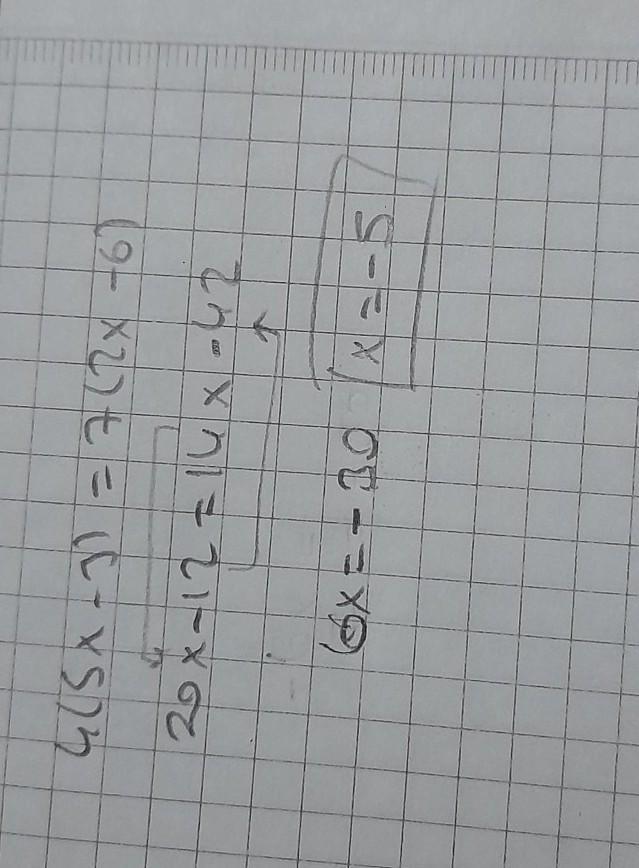 4(5x-3) = 7(2x-6)
20x-12=14x-42
6x=-30 x=-5